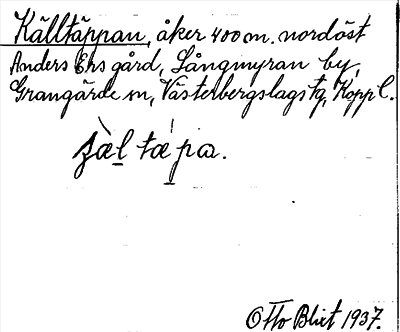 Källtäppan, åker 400 m. nordöst
Anders Ers gård, Långmyran by,
Grangärde sn, Västerbergslags tg, Kopp l.
Otto Blixt 1937.